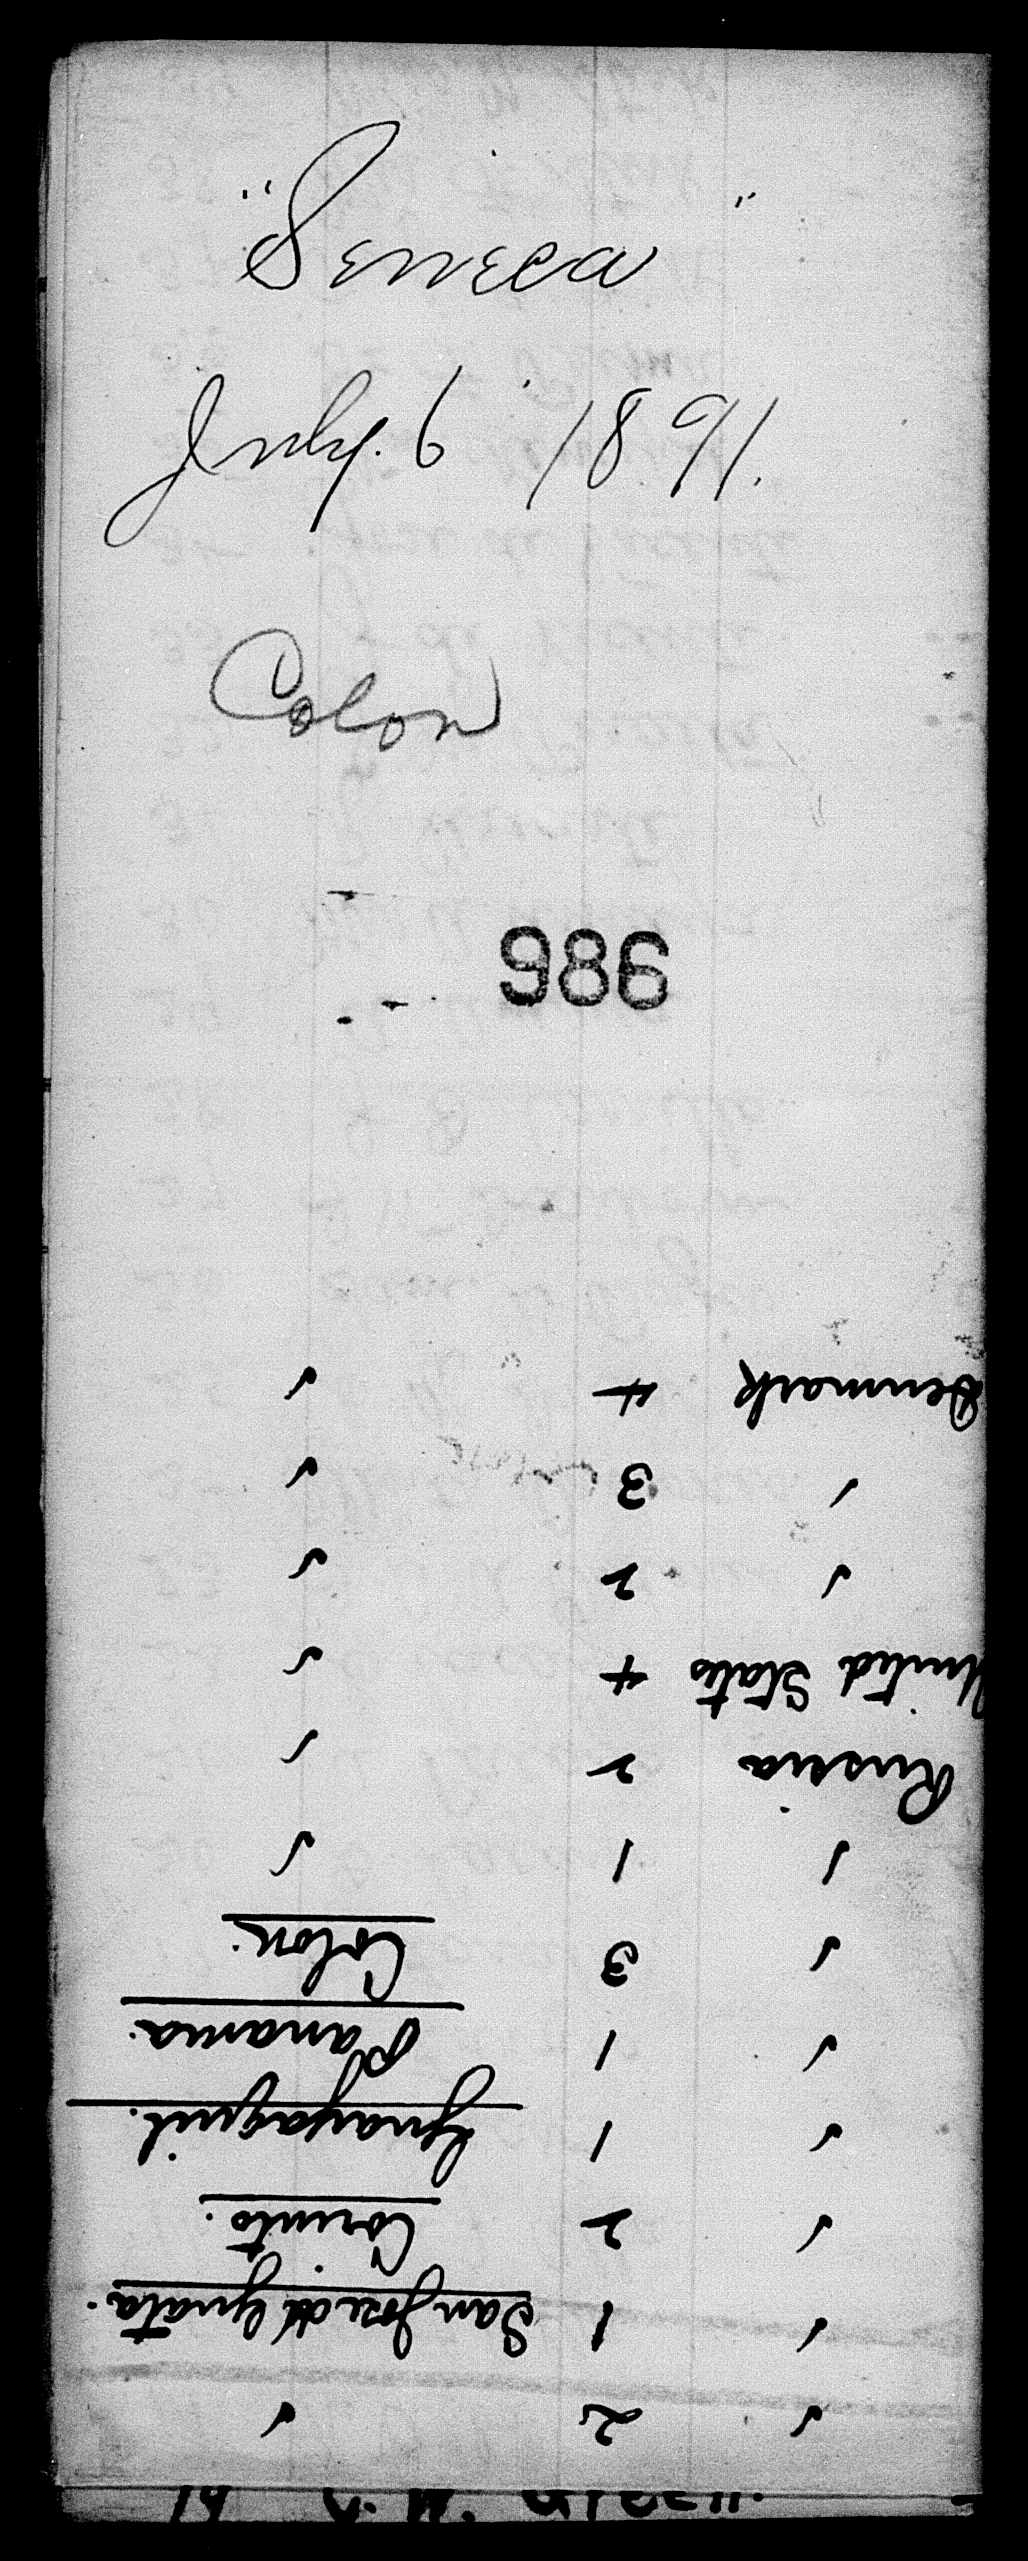 "Seneca"
July. 6 1891.
Colon
986
✓ 2 ✓
✓ 1 San Jose de Guata.
✓ 2 Corinto.
✓ 1 Guayaquil.
✓ 1 Panama.
✓ 3 Colon.
✓ 1 ✓
Russia 2 ✓
United States 4 ✓
✓ 2 ✓
✓ 3 ✓
Denmark 4 ✓